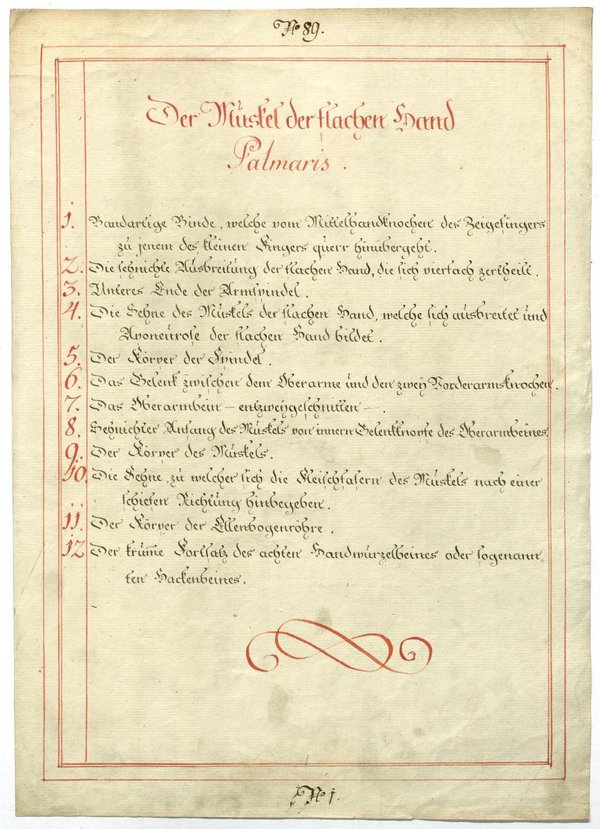 No 89.
Der Muskel der flachen Hand
Palmaris.
1. Bandartige Binde, welche vom Mittelhandknochen des Zeigefingers
zu jenem des kleinen Fingers querr hinübergeht.
2. Die sehnichte Ausbreitung der flachen Hand, die sich vierfach zertheilt.
3. Unteres Ende der Armspindel.
4. Die Sehne des Muskels der flachen Hand, welche sich ausbreitet und
Aponeurose der flachen Hand bildet.
5. Der Körper der Spindel.
6. Das Gelenk zwischen dem Oberarme und den zwey Vorderarmsknochen.
7. Das Oberarmbein – entzweygeschnitten –.
8. Sehnichter Anfang des Muskels von innern Gelenkknopfe des Oberarmbeines.
9. Der Körper des Muskels.
10. Die Sehne, zu welcher sich die Fleischfasern des Muskels nach einer
schiefen Richtung hinbegeben.
11. Der Körper der Ellenbogenröhre.
12 Der krumme Fortsatz des achten Handwurzelbeines oder sogenann„
ten Hackenbeines.
No 1.